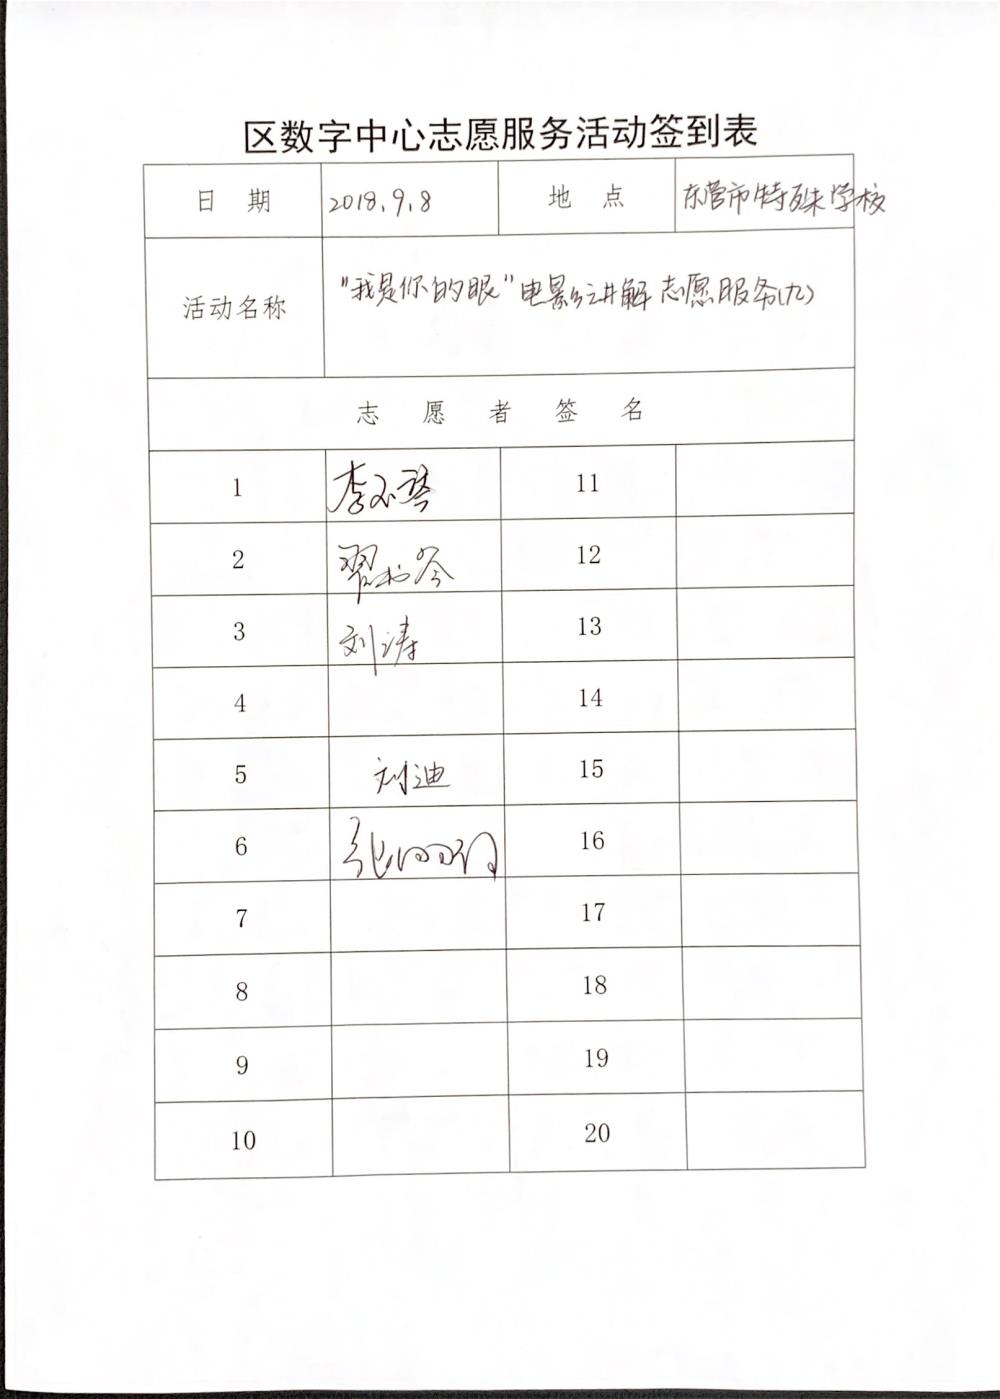 区数字中心志愿服务活动签到表
日 期 2018.9.8 地 点 东营市特殊学校
活动名称 "我是你的眼"电影讲解志愿服务(九)
志 愿 者 签 名
1 李 11
2 翟 12
3 刘涛 13
4 14
5 刘迪 15
6 张 16
7 17
8 18
9 19
10 20